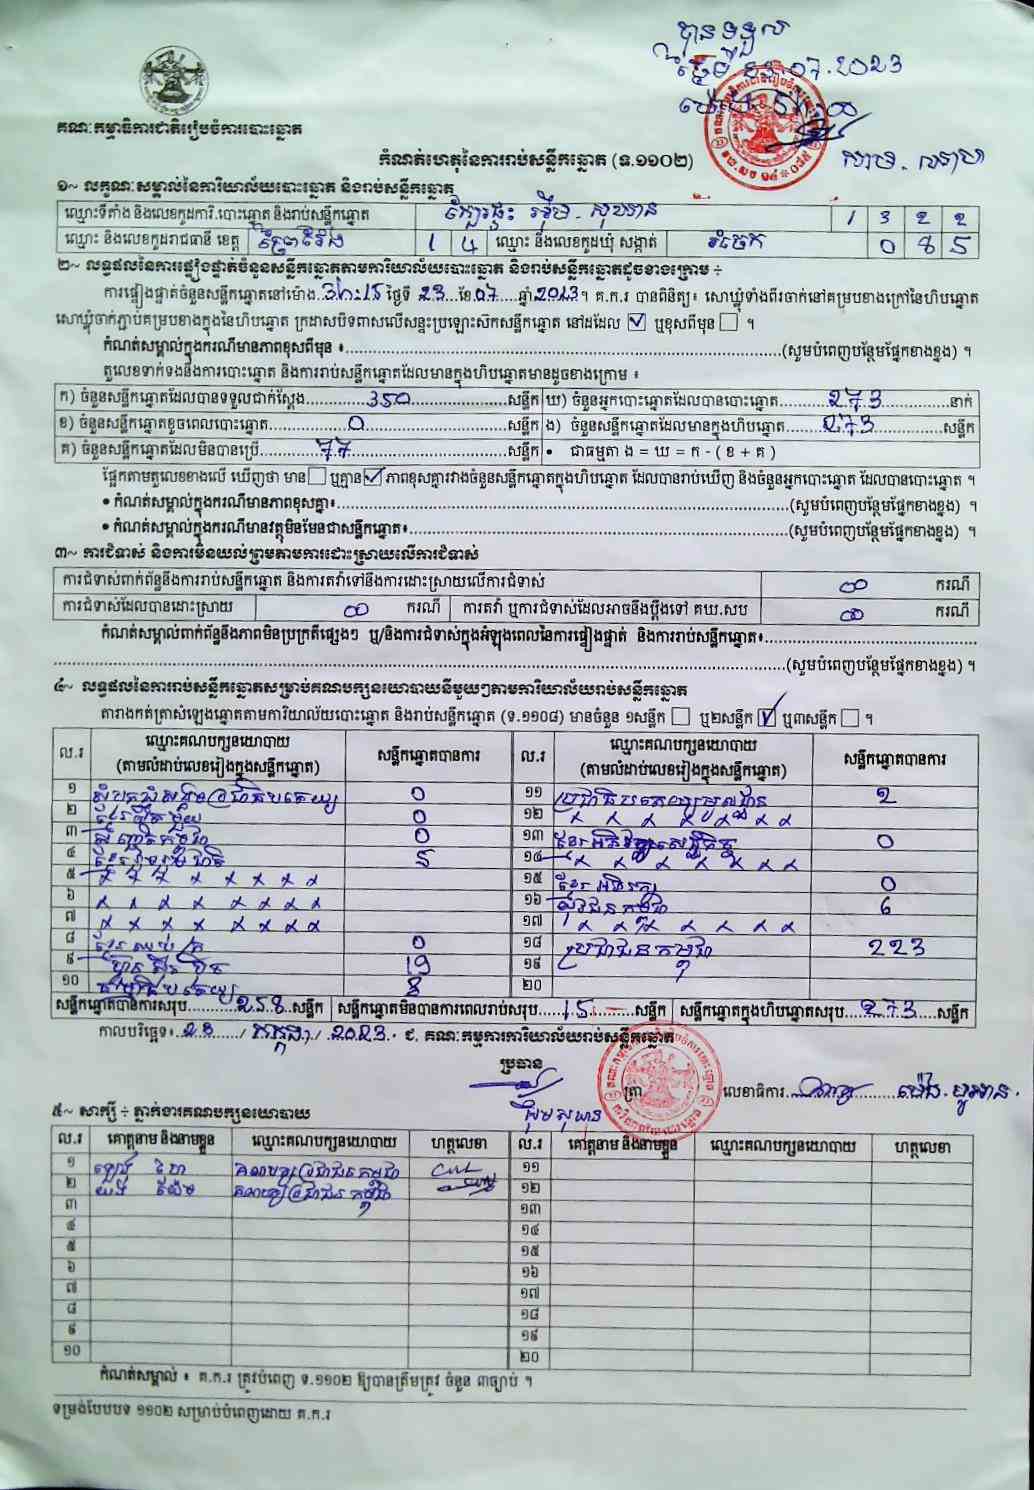 បានទទួល
ថ្ងៃទី 23.07.2023
គណៈកម្មាធិការជាតិរៀបចំការបោះឆ្នោត
កំណត់ហេតុនៃការរាប់សន្លឹកឆ្នោត (ទ.១១០២)
១~ លក្ខណៈសម្គាល់នៃការិយាល័យបោះឆ្នោត និងរាប់សន្លឹកឆ្នោត
ឈ្មោះទីតាំង និងលេខកូដការិ.បោះឆ្នោត និងរាប់សន្លឹកឆ្នោត 1 3 2 2
ឈ្មោះ និងលេខកូដរាជធានី ខេត្ត ព្រៃវែង 1 4 ឈ្មោះ និងលេខកូដឃុំ សង្កាត់ 0 8 5
២~ លទ្ធផលនៃការផ្ទៀងផ្ទាត់ចំនួនសន្លឹកឆ្នោតតាមការិយាល័យបោះឆ្នោត និងរាប់សន្លឹកឆ្នោតដូចខាងក្រោម ÷
ការផ្ទៀងផ្ទាត់ចំនួនសន្លឹកឆ្នោតនៅម៉ោង 3:15 ថ្ងៃទី 23 ខែ 07 ឆ្នាំ 2023។ គ.ក.រ បានពិនិត្យ៖ សោឃ្លុំទាំងពីរចាក់នៅគម្របខាងក្រៅនៃហិបឆ្នោត
សោឃ្លុំចាក់ភ្ជាប់គម្របខាងក្នុងនៃហិបឆ្នោត ក្រដាសបិទពាសលើសន្ទះប្រឡោះស៊កសន្លឹកឆ្នោត នៅដដែល ☑ ឬខុសពីមុន ☐ ។
កំណត់សម្គាល់ក្នុងករណីមានភាពខុសពីមុន ៖ (សូមបំពេញបន្ថែមផ្នែកខាងខ្នង) ។
តួលេខទាក់ទងនឹងការបោះឆ្នោត និងការរាប់សន្លឹកឆ្នោតដែលមានក្នុងហិបឆ្នោតមានដូចខាងក្រោម ៖
ក) ចំនួនសន្លឹកឆ្នោតដែលបានទទួលជាក់ស្តែង 350 សន្លឹក ឃ) ចំនួនអ្នកបោះឆ្នោតដែលបានបោះឆ្នោត 273 នាក់
ខ) ចំនួនសន្លឹកឆ្នោតខូចពេលបោះឆ្នោត 0 សន្លឹក ង) ចំនួនសន្លឹកឆ្នោតដែលមានក្នុងហិបឆ្នោត 273 សន្លឹក
គ) ចំនួនសន្លឹកឆ្នោតដែលមិនបានប្រើ 77 សន្លឹក • ជាធម្មតា ង = ឃ = ក - ( ខ + គ )
ផ្អែកតាមតួលេខខាងលើ ឃើញថា មាន ☐ ឬគ្មាន ☑ ភាពខុសគ្នារវាងចំនួនសន្លឹកឆ្នោតក្នុងហិបឆ្នោត ដែលបានរាប់ឃើញ និងចំនួនអ្នកបោះឆ្នោត ដែលបានបោះឆ្នោត ។
• កំណត់សម្គាល់ក្នុងករណីមានភាពខុសគ្នា៖ (សូមបំពេញបន្ថែមផ្នែកខាងខ្នង) ។
• កំណត់សម្គាល់ក្នុងករណីមានវត្ថុមិនមែនជាសន្លឹកឆ្នោត៖ (សូមបំពេញបន្ថែមផ្នែកខាងខ្នង) ។
៣~ ការជំទាស់ និងការមិនយល់ព្រមតាមការដោះស្រាយលើការជំទាស់
ការជំទាស់ពាក់ព័ន្ធនឹងការរាប់សន្លឹកឆ្នោត និងការតវ៉ាទៅនឹងការដោះស្រាយលើការជំទាស់ 00 ករណី
ការជំទាស់ដែលបានដោះស្រាយ 00 ករណី ការតវ៉ា ឬការជំទាស់ដែលអាចនឹងប្តឹងទៅ គឃ.សប 00 ករណី
កំណត់សម្គាល់ពាក់ព័ន្ធនឹងភាពមិនប្រក្រតីផ្សេងៗ ឬ/និងការជំទាស់ក្នុងអំឡុងពេលនៃការផ្ទៀងផ្ទាត់ និងការរាប់សន្លឹកឆ្នោត៖
(សូមបំពេញបន្ថែមផ្នែកខាងខ្នង) ។
៤~ លទ្ធផលនៃការរាប់សន្លឹកឆ្នោតសម្រាប់គណបក្សនយោបាយនីមួយៗតាមការិយាល័យរាប់សន្លឹកឆ្នោត
តារាងកត់ត្រាសំឡេងឆ្នោតតាមការិយាល័យបោះឆ្នោត និងរាប់សន្លឹកឆ្នោត (ទ.១១០៨) មានចំនួន ១សន្លឹក ☐ ឬ២សន្លឹក ☑ ឬ៣សន្លឹក ☐ ។
ល.រ ឈ្មោះគណបក្សនយោបាយ (តាមលំដាប់លេខរៀងក្នុងសន្លឹកឆ្នោត) សន្លឹកឆ្នោតបានការ ល.រ ឈ្មោះគណបក្សនយោបាយ (តាមលំដាប់លេខរៀងក្នុងសន្លឹកឆ្នោត) សន្លឹកឆ្នោតបានការ
១ សំបុកឃ្មុំសង្គមប្រជាធិបតេយ្យ 0 ១១ ប្រជាធិបតេយ្យមូលដ្ឋាន 2
២ ខ្មែរតែមួយ 0 ១២ x x x x x x x
៣ កម្ពុជា 0 ១៣ ខ្មែរអភិវឌ្ឍន៍សេដ្ឋកិច្ច 0
៤ ខ្មែររួបរួមជាតិ 5 ១៤ x x x x x x
៥ x x x x x x x ១៥ ខ្មែរអភិរក្ស 0
៦ x x x x x x x ១៦ យុវជនកម្ពុជា 6
៧ x x x x x x x ១៧ x x x x x x x
៨ ខ្មែរឈប់ក្រ 0 ១៨ ប្រជាជនកម្ពុជា 223
៩ ហ្វ៊ុនស៊ិនប៉ិច 19 ១៩
១០ ធម្មាធិបតេយ្យ 8 ២០
សន្លឹកឆ្នោតបានការសរុប 258 សន្លឹក សន្លឹកឆ្នោតមិនបានការពេលរាប់សរុប 15 សន្លឹក សន្លឹកឆ្នោតក្នុងហិបឆ្នោតសរុប 273 សន្លឹក
កាលបរិច្ឆេទ៖ 23 / កក្កដា / 2023 ជ. គណៈកម្មការការិយាល័យរាប់សន្លឹកឆ្នោត
ប្រធាន
ត្រា លេខាធិការ
៥~ សាក្សី ÷ ភ្នាក់ងារគណបក្សនយោបាយ
ល.រ គោត្តនាម និងនាមខ្លួន ឈ្មោះគណបក្សនយោបាយ ហត្ថលេខា ល.រ គោត្តនាម និងនាមខ្លួន ឈ្មោះគណបក្សនយោបាយ ហត្ថលេខា
១ គណបក្សប្រជាជនកម្ពុជា ១១
២ គណបក្សប្រជាជនកម្ពុជា ១២
៣ ១៣
៤ ១៤
៥ ១៥
៦ ១៦
៧ ១៧
៨ ១៨
៩ ១៩
១០ ២០
កំណត់សម្គាល់ ៖ គ.ក.រ ត្រូវបំពេញ ទ.១១០២ ឱ្យបានត្រឹមត្រូវ ចំនួន ៣ច្បាប់ ។
ទម្រង់បែបបទ ១១០២ សម្រាប់បំពេញដោយ គ.ក.រ